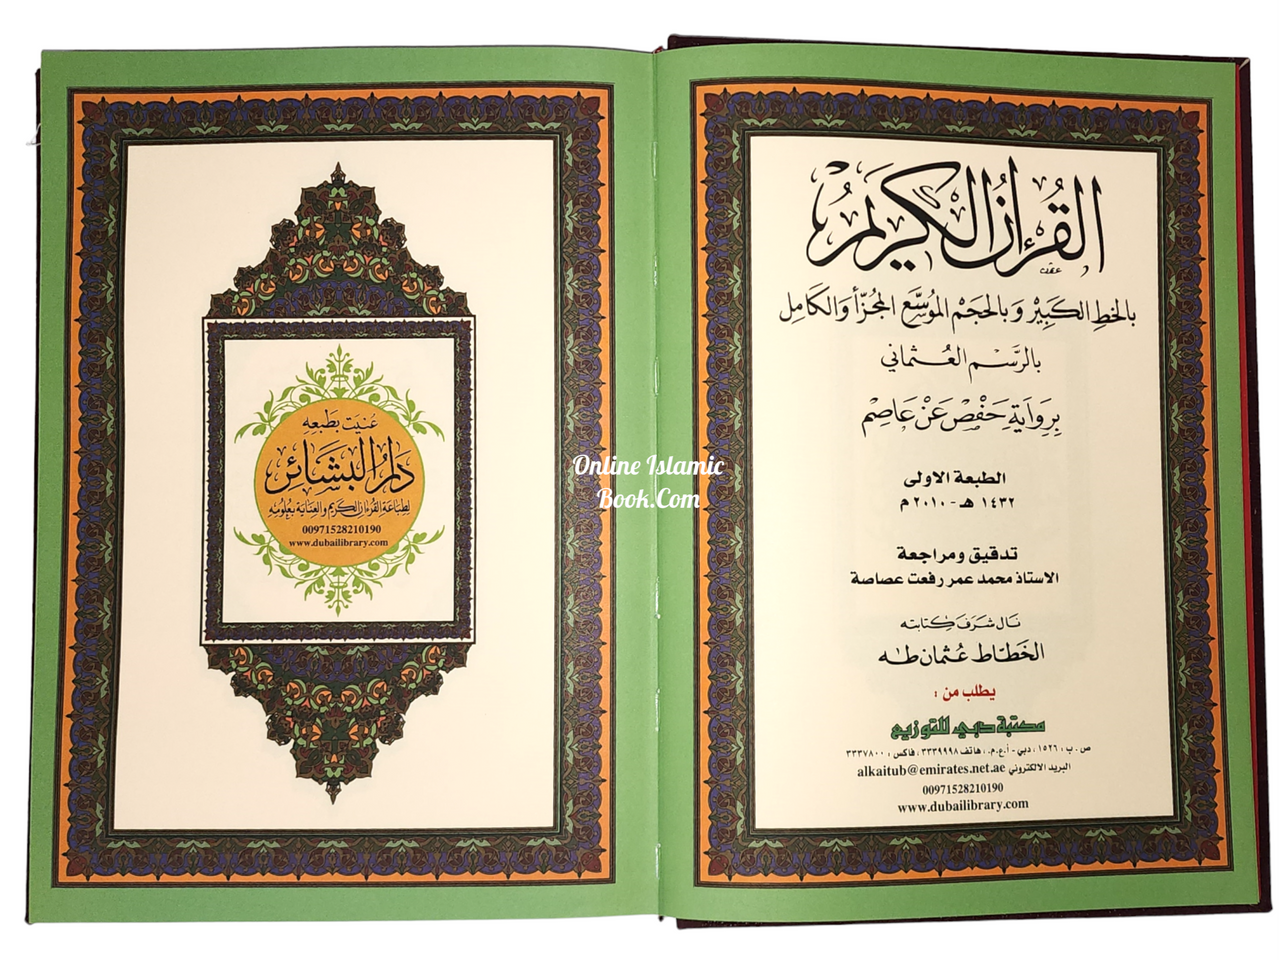 القرءان الكريم
بالخط الكبير وبالحجم الموسع المجزأ والكامل
بالرسم العثماني
برواية حفص عن عاصم
الطبعة الاولى
١٤٣٢ هـ - ٢٠١٠ م
تدقيق ومراجعة
الاستاذ محمد عمر رفعت عصاصة
نال شرف كتابته
الخطاط عثمان طه
يطلب من :
مكتبة دبي للتوزيع
ص . ب : ١٥٢٦ ، دبي - أ.ع.م. ، هاتف ٣٣٣٩٩٩٨ ، فاكس : ٣٣٣٧٨٠٠
البريد الالكتروني alkaitub@emirates.net.ae
00971528210190
www.dubailibrary.com
عنيت بطبعه
دار البشائر
لطباعة القرءان الكريم والعناية بعلومه
00971528210190
www.dubailibrary.com
Online Islamic
Book.Com